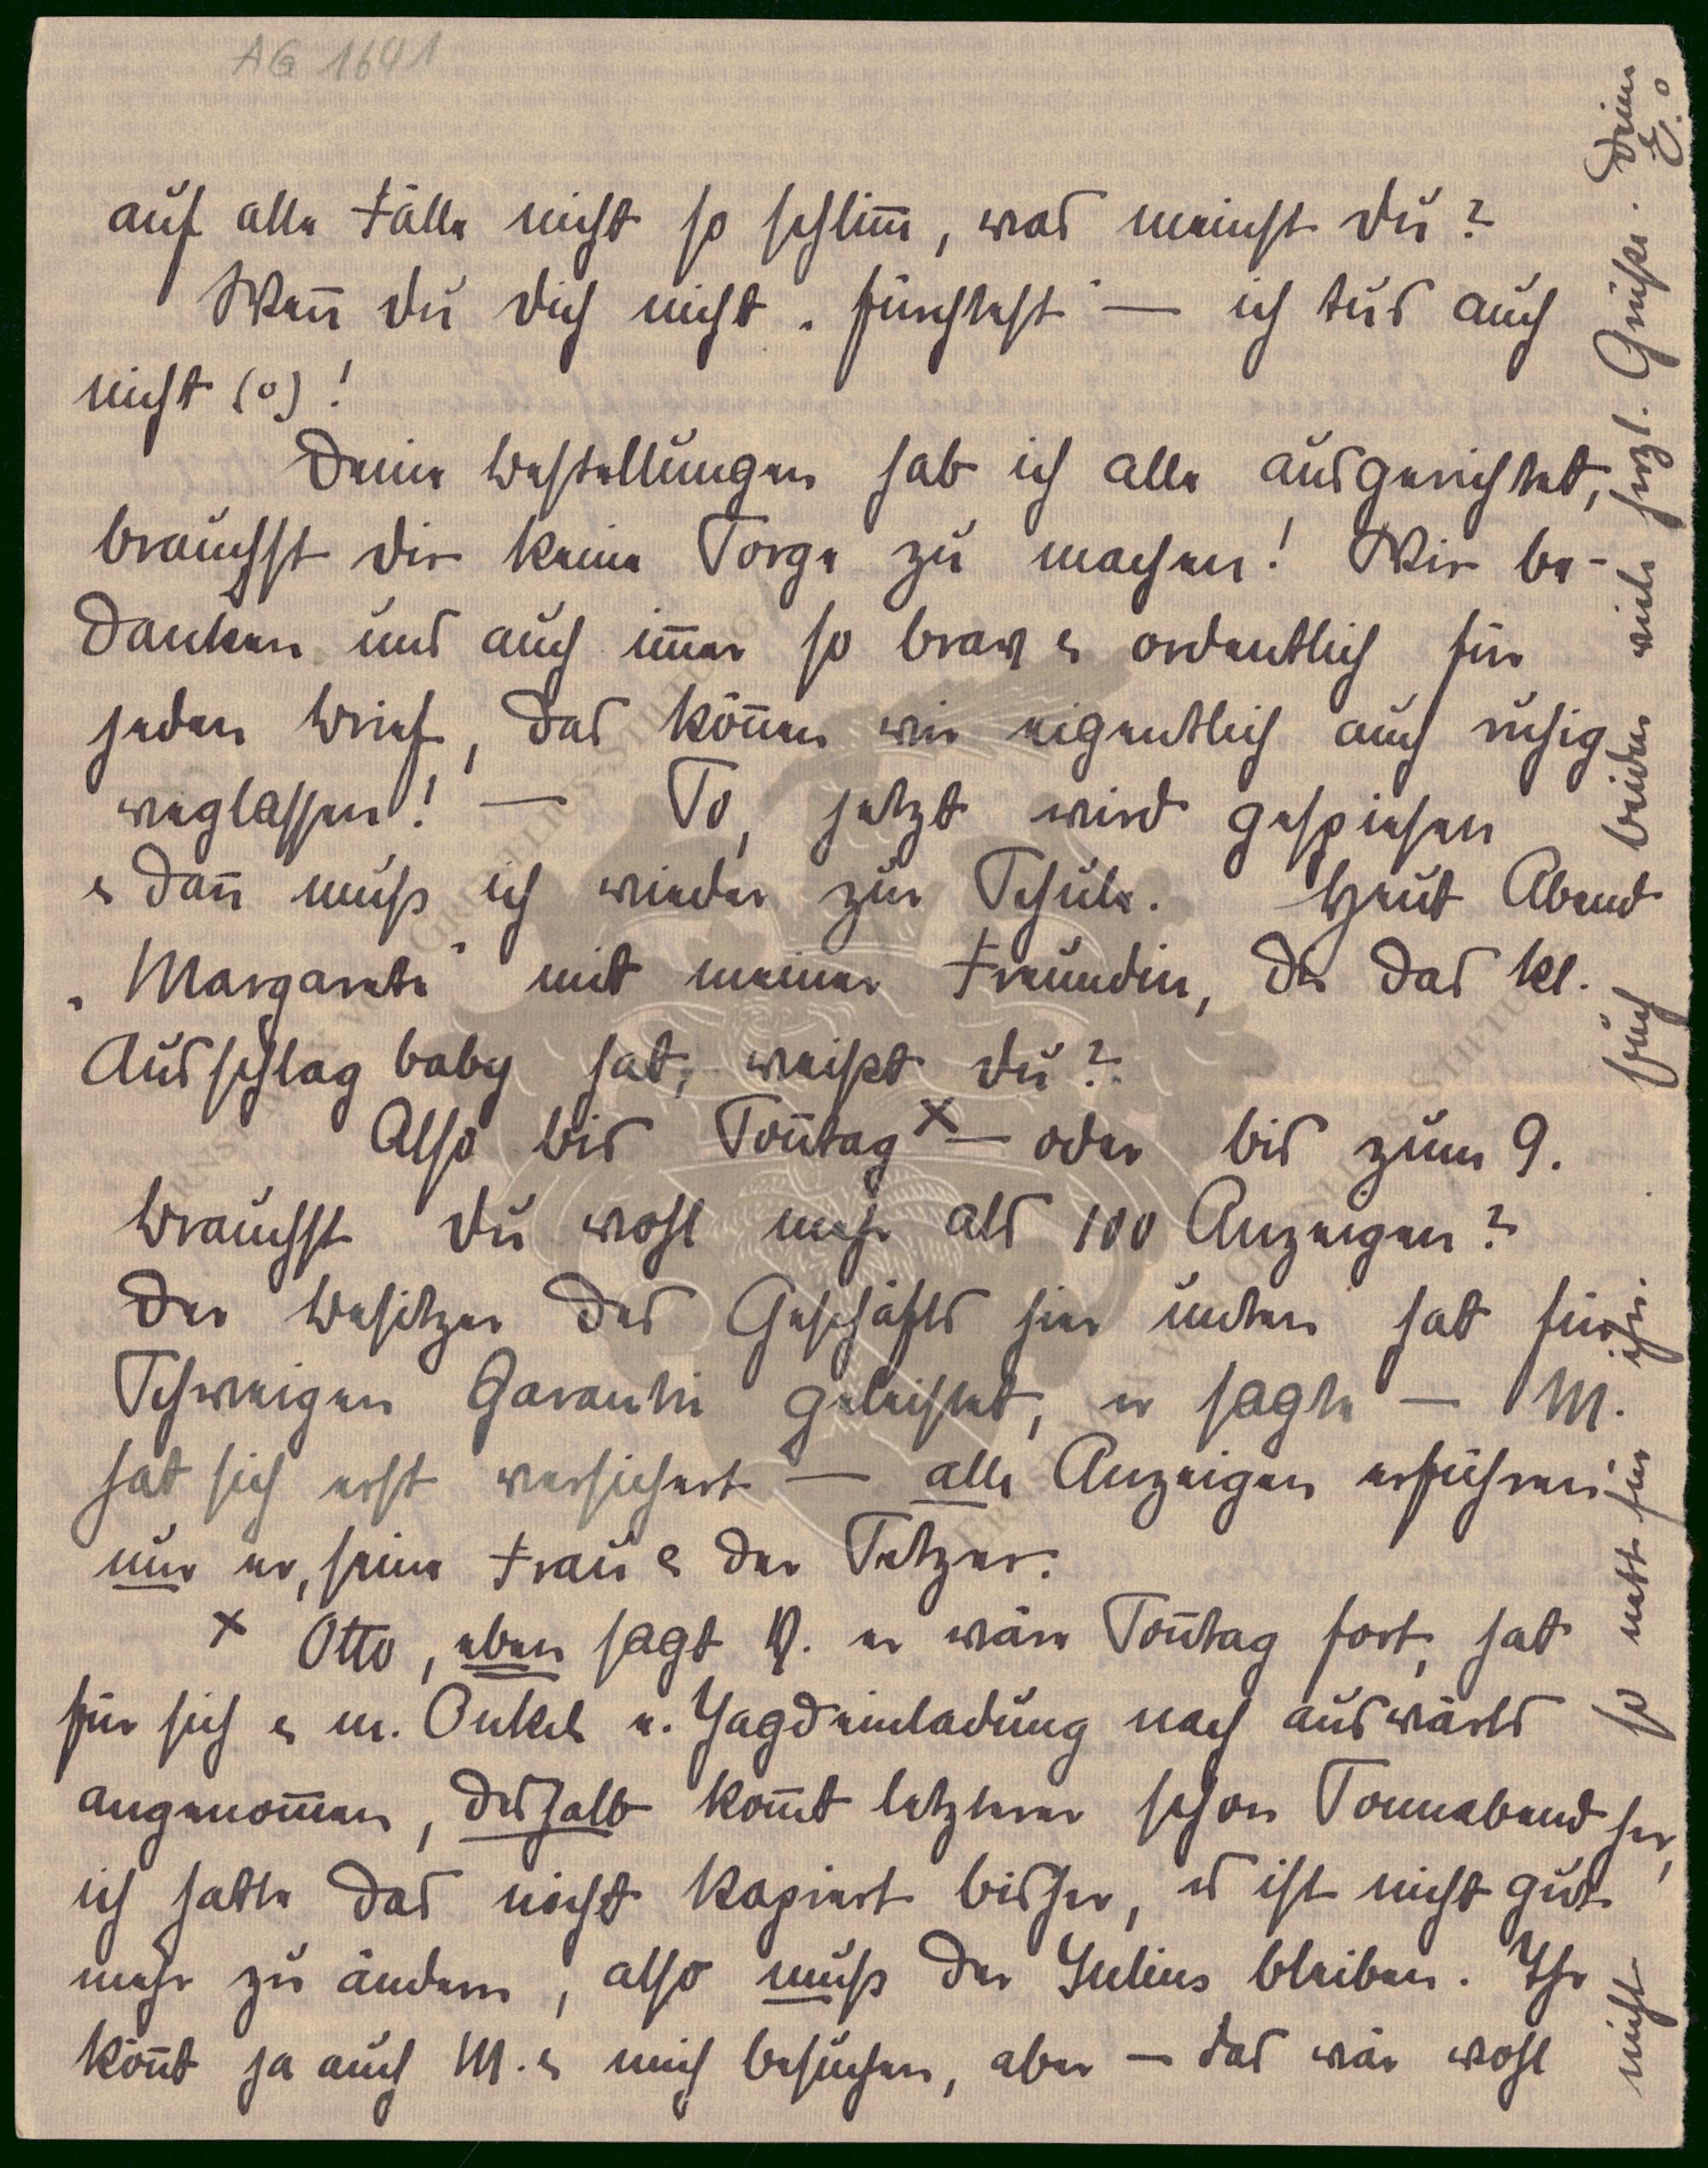 AG 1641
auf alle Fälle nicht so schlim̅, was meinst Du?
Wen̅ Du Dich nicht „fürchtest" — ich tus auch
nicht (o)!
Deine Bestellungen hab ich alle ausgerichtet,
brauchst Dir keine Sorge zu machen! Wir be-
danken uns auch im̅er so brav & ordentlich für
jeden Brief, das kön̅en wir eigentlich auch ruhig
weglassen! — So, jetzt wird gespiesen
& dan̅ muß ich wieder zur Schule. Heut Abend
„Margarete" mit meiner Freundin, die das kl.
Ausschlagbaby hat, weißt Du?
Also bis Son̅tag × — oder bis zum 9.
Brauchst Du wohl mehr als 100 Anzeigen?
Der Besitzer des Geschäfts hier unten hat für
Schweigen Garantie geleistet, er sagte — M.
hat sich erst versichert — alle Anzeigen erführen
nur er, seine Frau & der Setzer.
× Otto, eben sagt V. er wäre Son̅tag fort, hat
für sich & m. Onkel e. Jagdeinladung nach auswärts
angenom̅en, deshalb kom̅t letzterer schon Sonnabend her,
ich hatte das nicht kapiert bisher, es ist nicht gut
mehr zu ändern, also muß der Julius bleiben. Ihr
kön̅t ja auch M. & mich besuchen, aber — das wär wohl
nicht so nett für ihn. Euch beiden viele herzl. Grüße. Deine
E.